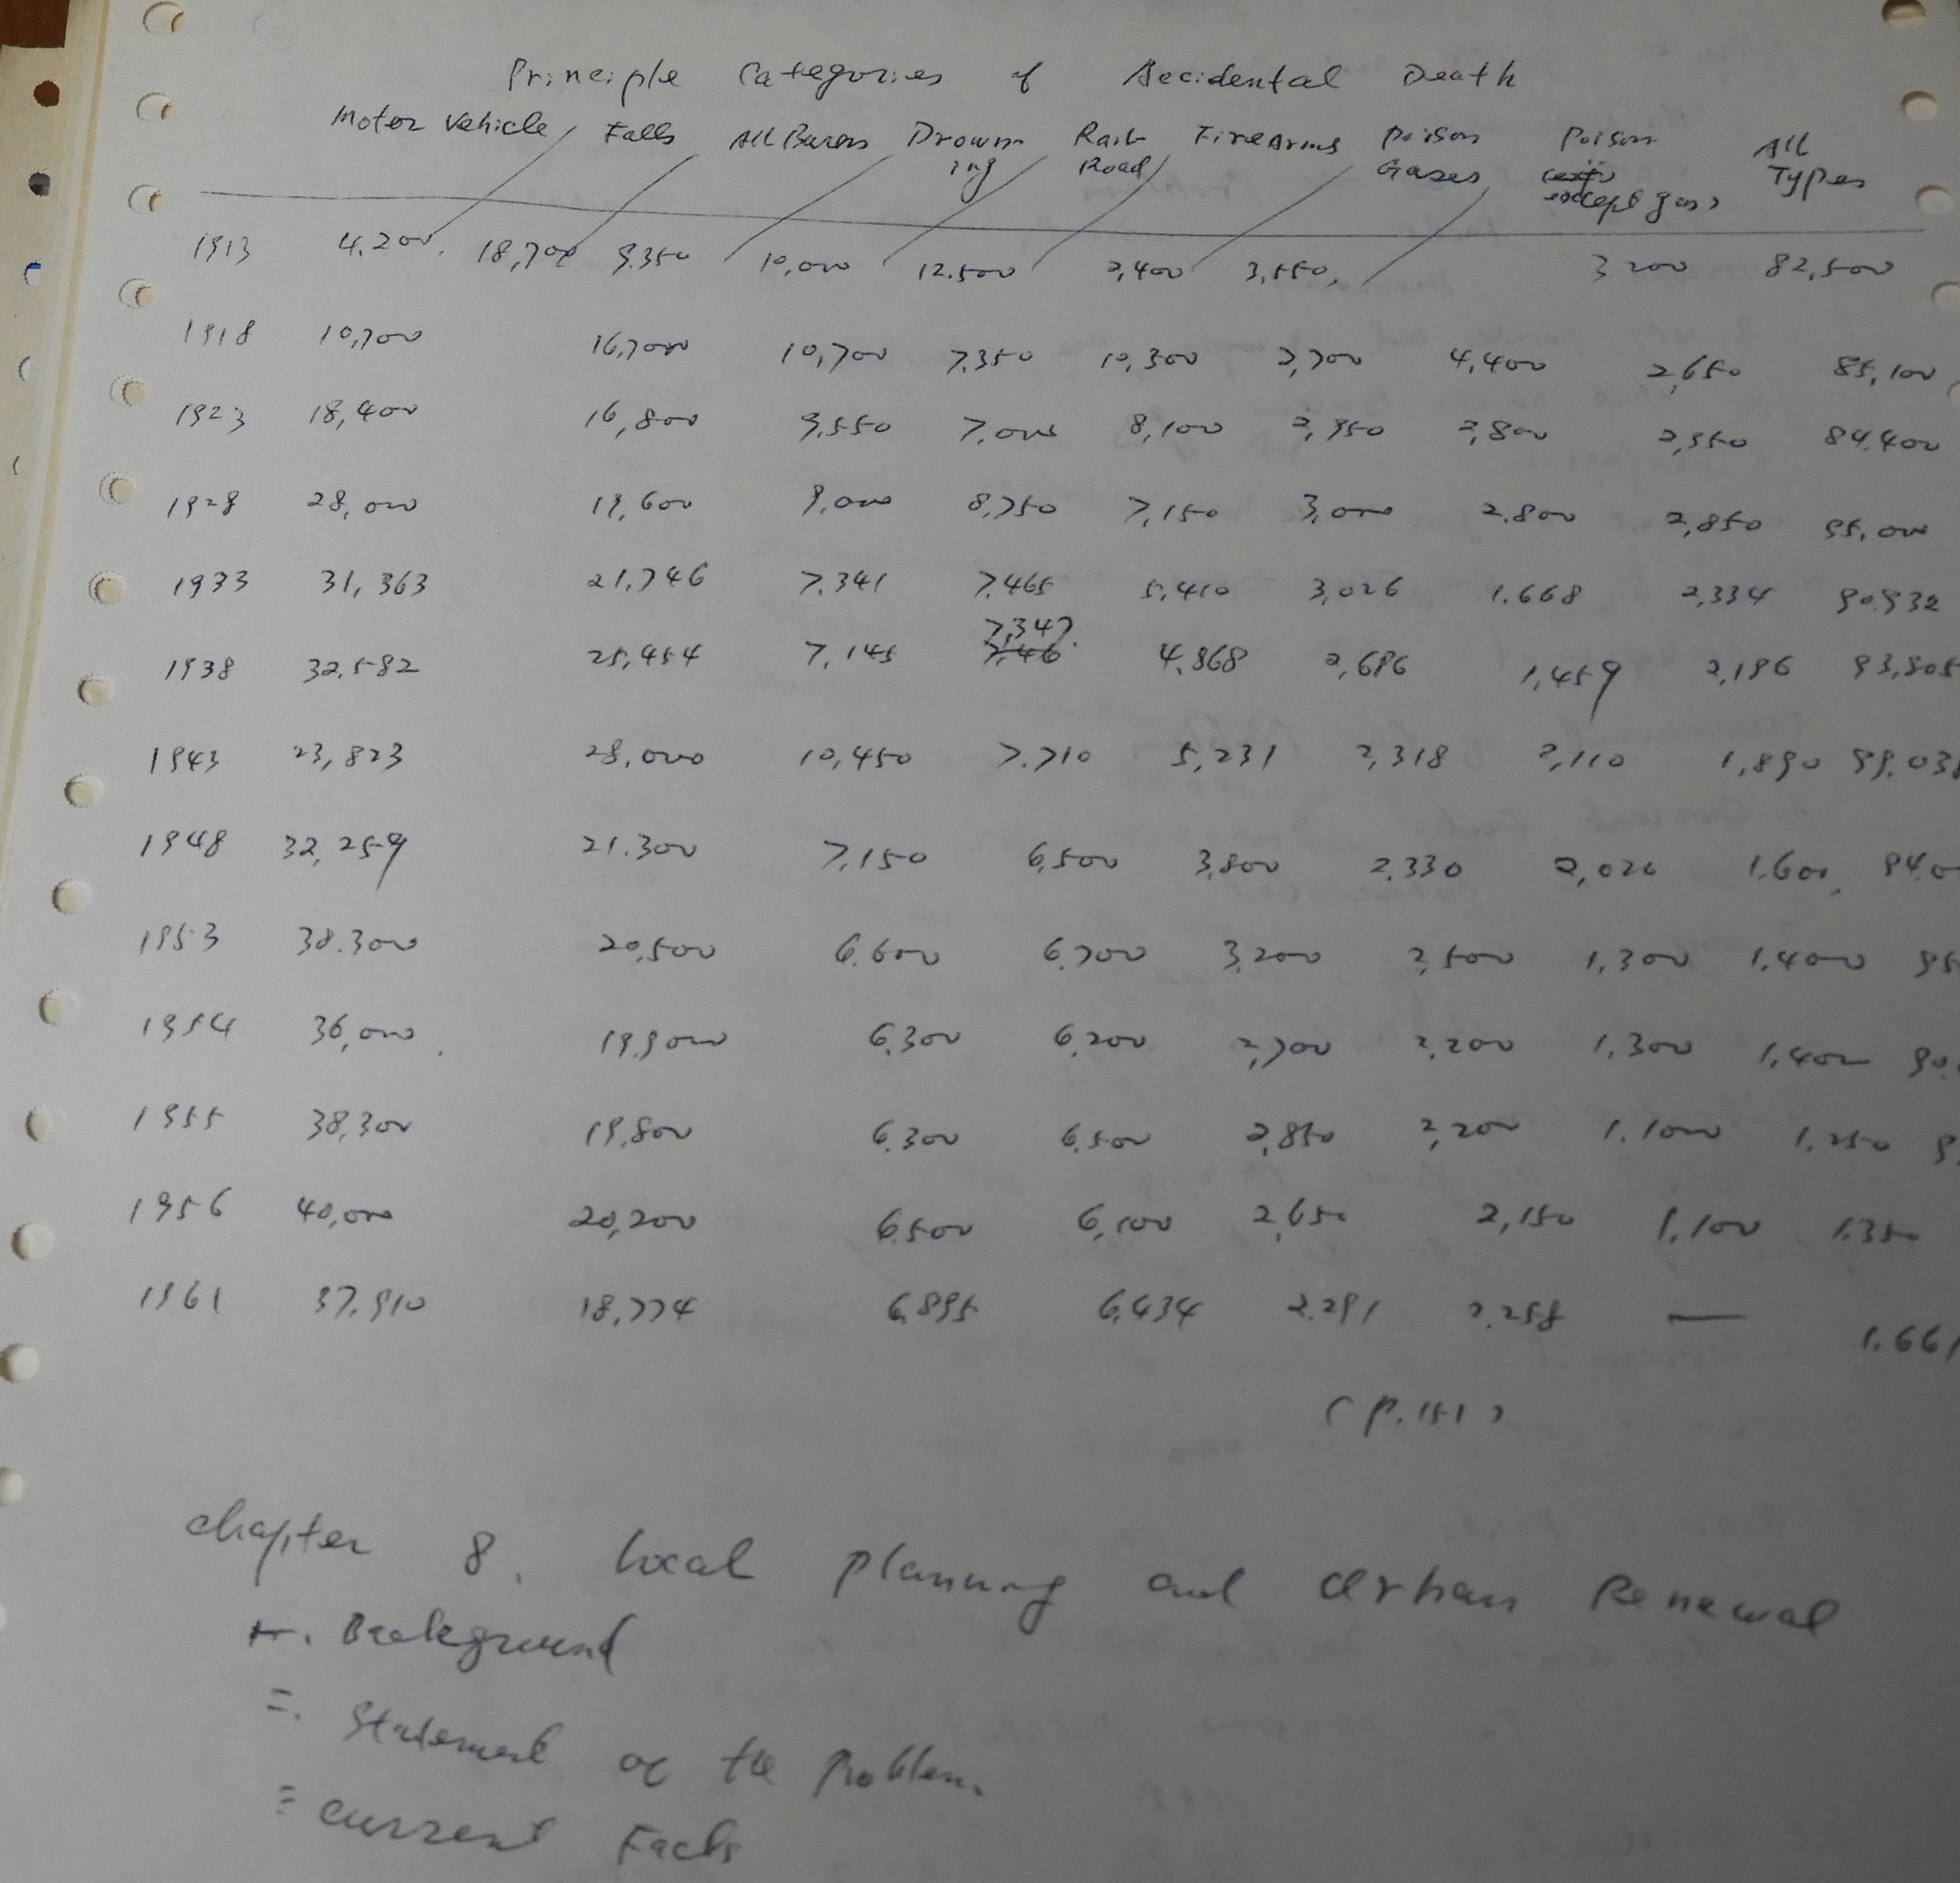 Principle Categories of Accidental Death
Motor Vehicle / Falls / All Burns / Drowning / Rail Road / Fire Arms / Poison Gases / Poison except gas) All Types
1913 4,200. 18,700 9.350 10,000 12.500 2,400 3,550, 3 200 82,500
1918 10,700 16,700 10,700 7.350 10,300 2,700 4,400 2,650 85,100
1923 18,400 16,800 9,550 7,000 8,100 2,950 2,800 2,550 84,400
1928 28,000 19,600 9,000 8,750 7,150 3,000 2.800 2,850 95,000
1933 31,363 21,746 7.341 7.465 5,410 3,026 1.668 2,334 90.932
1938 32,582 25,454 7,145 7,347. 4,868 2,686 1,459 2,196 93,805
1943 23,823 28,000 10,450 7.710 5,231 2,318 2,110 1,890 99.038
1948 32,259 21.300 7,150 6,500 3,800 2.330 2,020 1,600, 94.0
1953 38.300 20,500 6.600 6.700 3,200 2,500 1,300 1,400 95
1954 36,000. 19.900 6,300 6,200 2,700 2,200 1,300 1,400 90.
1955 38,300 19,800 6.300 6.500 2,850 2,200 1.100 1,250 9
1956 40,000 20,200 6.500 6,100 2,650 2,150 1,100 1.350
1961 37.910 18,774 6,895 6,434 2.291 2.258 — 1.661
(p.151)
chapter 8. local planning and Urban Renewal
Background
=. Statement of the Problem.
= current Facts